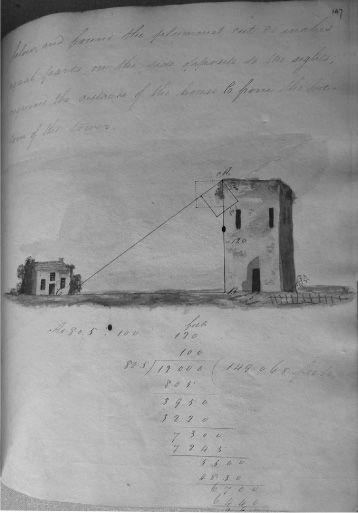 147
below, and found the plummet cut 80 inches
equal parts, on the side opposite to the sights,
required the distance of the house C from the bot-
tom of the tower.
120
As 80.5 : 100
feet
120
100
805)12000(149.068 feet
805
3950
3220
7300
7245
5500
4830
6700
6440